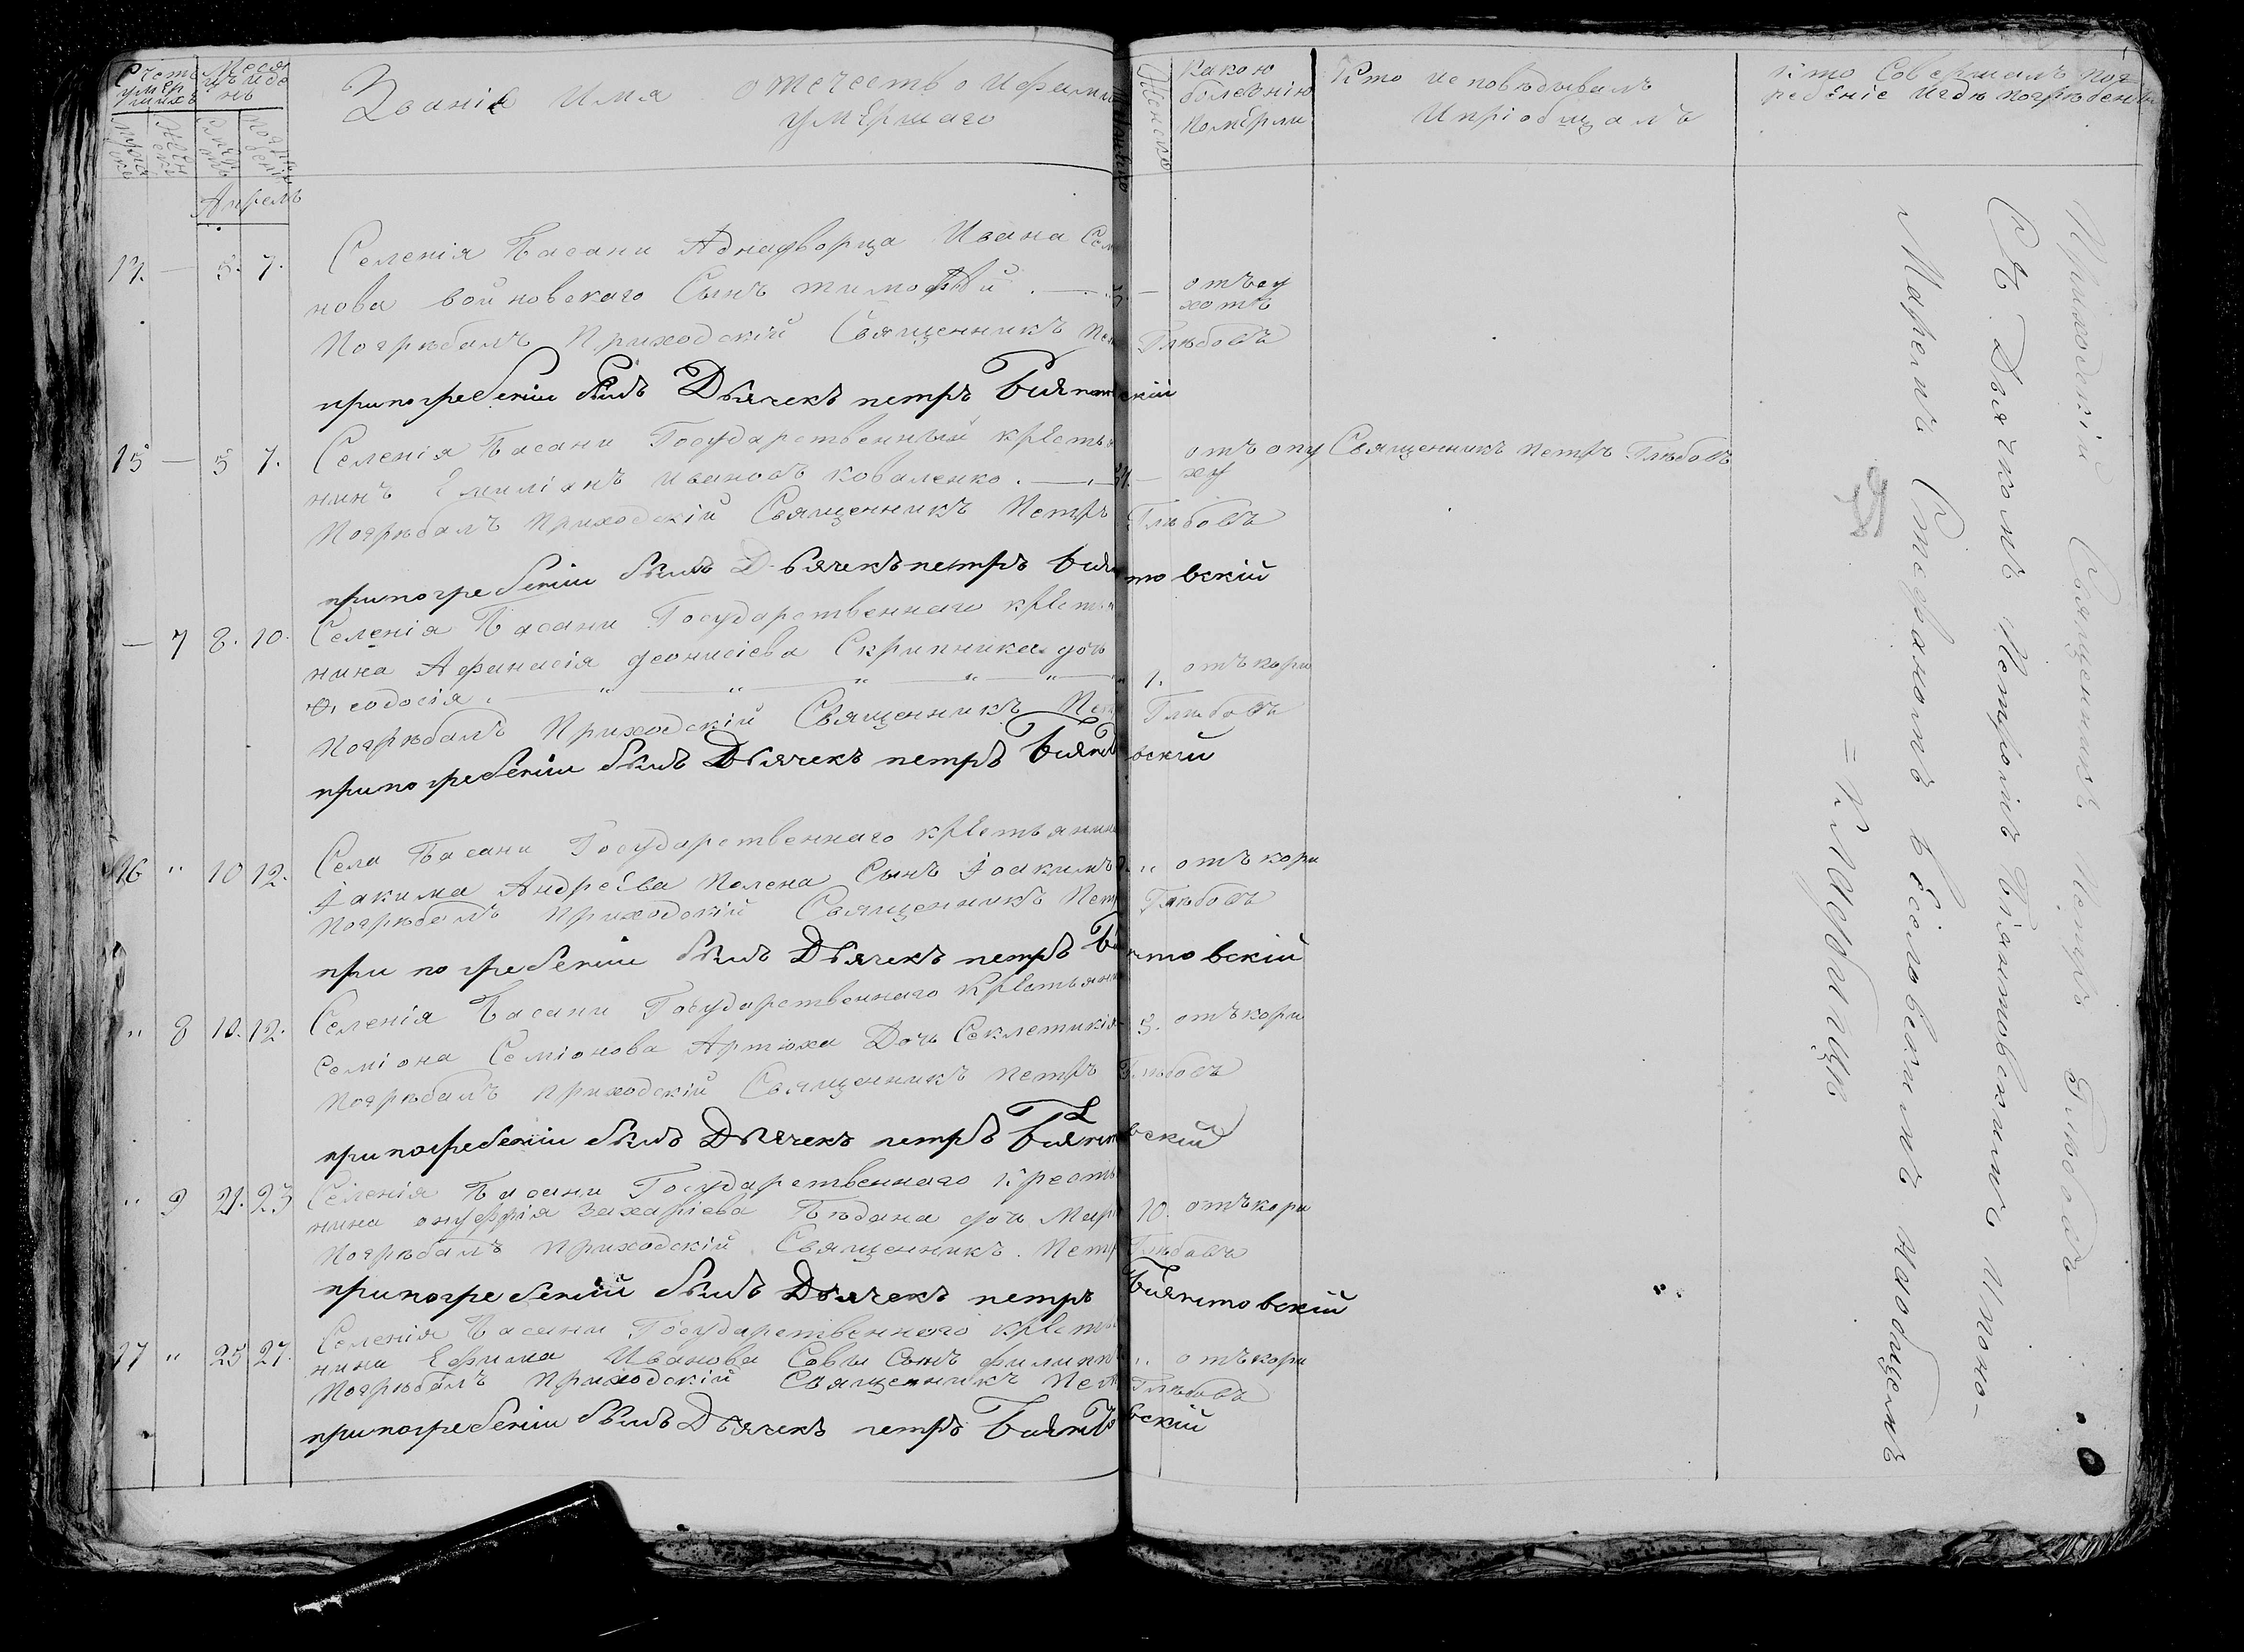 Счетъ умер шихъ
Месяцъ и де нь
Званіе Имя отечество и фами
умершаго
Мужеска
Женска
Апрель
Женско
какою болезнію померли
Кто исповѣдывалъ
и пріобщалъ
кто Совершалъ пог
ребеніе и гдѣ погребены
5. 7.
Селенія Басани Аднадворца Ивана Сем
нова войновскаго Сынъ тимофѣй
отъ су
хотъ
Погрѣбалъ Приходскій Священникъ Пет Глѣбовъ
припогребеніи былъ Дьячекъ петръ Біянтовскій
15 — 5 7.
Селенія Басани Государственный крестья
отъ опу
ху
Священникъ Петръ Глѣбовъ
нинъ Емиліанъ Ивановъ коваленко.
Погрѣбалъ Приходскій Священникъ Петръ Глѣбовъ
припогребеніи былъ Дьячекъ петръ Біянтовскій
— 7 8. 10.
Селенія Басани Государственнаго крестья
нина Афанасія Деонисіева Скрипника дочь
Феодосія.
1. отъ кори
Погрѣбалъ Приходскій Священникъ Пет Глѣбовъ
припогребеніи былъ Дьячекъ петръ Біянтовскій
16 " 10 12.
Села Басани Государственнаго крестьянин
Іакима Андреева Полена Сынъ Іоакимъ
" отъ кори
Погрѣбалъ Приходскій Священникъ Пет Глѣбовъ
при погребеніи былъ Дьячекъ петръ Біянтовскій
" 8 10. 12.
Селенія Басани Государственнаго Крестьяни
Семіона Семіонова Артюха Дочь Секлетикія
3. отъ кори
Погрѣбалъ приходскій Священникъ Петръ Глѣбовъ
припогребеніи былъ Дьячекъ петръ Біянтовскій
" 9 21. 23
Селенія Басани Государственнаго Кресть
нина онуфрія Захаріева Бѣдана дочь Мар
10. отъ кори
Погрѣбалъ приходскій Священникъ Петр Глѣбовъ
припогребеніи былъ Дьячекъ петръ Біянтовскій
17 " 25 27.
Селенія Басани Государственнаго кресть
нина Ефима Иванова Саввы Сынъ филипп
" отъ кори
Погрѣбалъ приходскій Священникъ Пет Глѣбовъ
припогребеніи былъ Дьячекъ петръ Біянтовскій
Приходскій Священникъ Петръ Глѣбовъ
Съ Дьячкомъ Петромъ Біянтовскимъ Поно-
Маремъ Стефаномъ на общемъ
= кладбищѣ